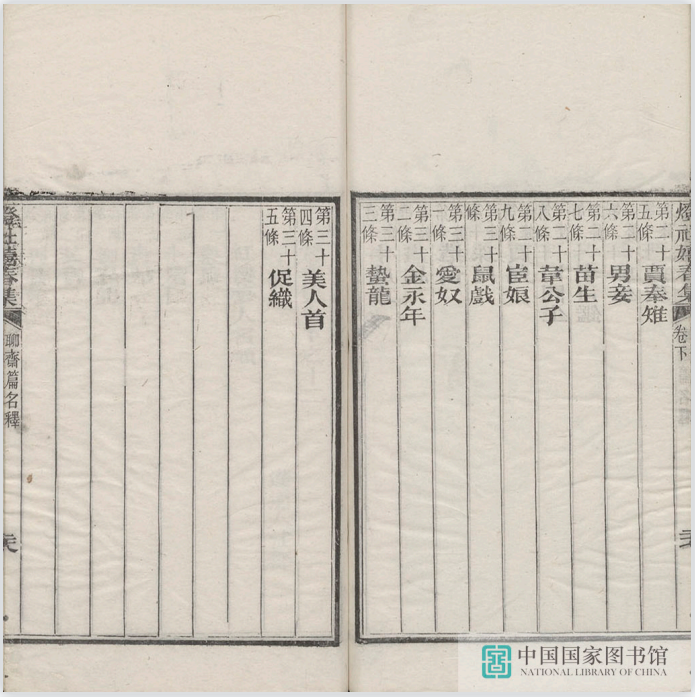 燈社嬉春集 卷下
第二十五條 賈奉雉
第二十六條 男妾
第二十七條 苗生
第二十八條 韋公子
第二十九條 宦娘
第三十條 鼠戲
第三十一條 愛奴
第三十二條 金永年
第三十三條 蟄龍
第三十四條 美人首
第三十五條 促織
燈社嬉春集 聊齋篇名釋
中国国家图书馆
NATIONAL LIBRARY OF CHINA